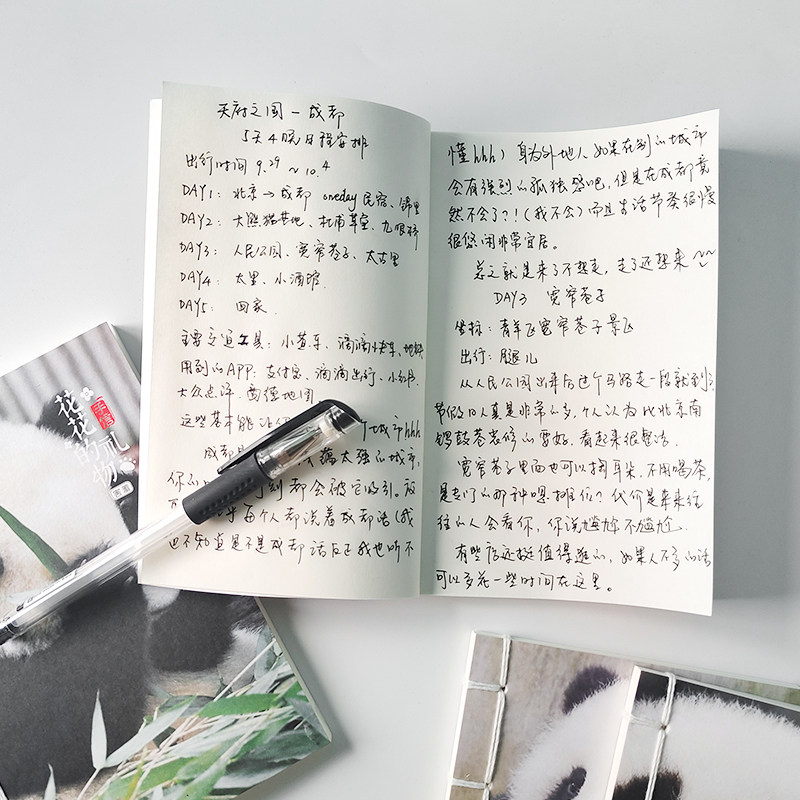 天府之国-成都
5天4晚日程安排
出行时间 9.29 ~ 10.4
DAY1: 北京→成都 oneday民宿、锦里
DAY2: 大熊猫基地、杜甫草堂、九眼桥
DAY3: 人民公园、宽窄巷子、太古里
DAY4: 太里、小酒馆
DAY5: 回家
主要交通工具: 小黄车、滴滴快车、地铁
用到的APP: 支付宝、滴滴出行、小红书、
大众点评、高德地图
这些基本能让你 城市hhh
成都是 太强的城市,
你 时刻都会被它吸引。
乎每个人都说着成都话(我
也不知道是不是成都话反正我也听不
懂hhh)身为外地人如果在别的城市
会有强烈的孤独感吧,但是在成都竟
然不会了?!(我不会)而且生活节奏很慢
很悠闲非常宜居。
总之就是来了不想走,走了还想来~~
DAY3 宽窄巷子
坐标: 青羊区宽窄巷子景区
出行: 腿儿
从人民公园出来后过个马路走一段就到了
节假日人真是非常的多,个人认为比北京南
锣鼓巷装修的要好,看起来很整洁。
宽窄巷子里面也可以掏耳朵,不用喝茶,
是专门的那种噢,排价?代价是来来往
往的人会看你,你说尴尬不尴尬。
有些店还挺值得逛的,如果人不多的话
可以多花一些时间在这里。
花花的礼物
手信